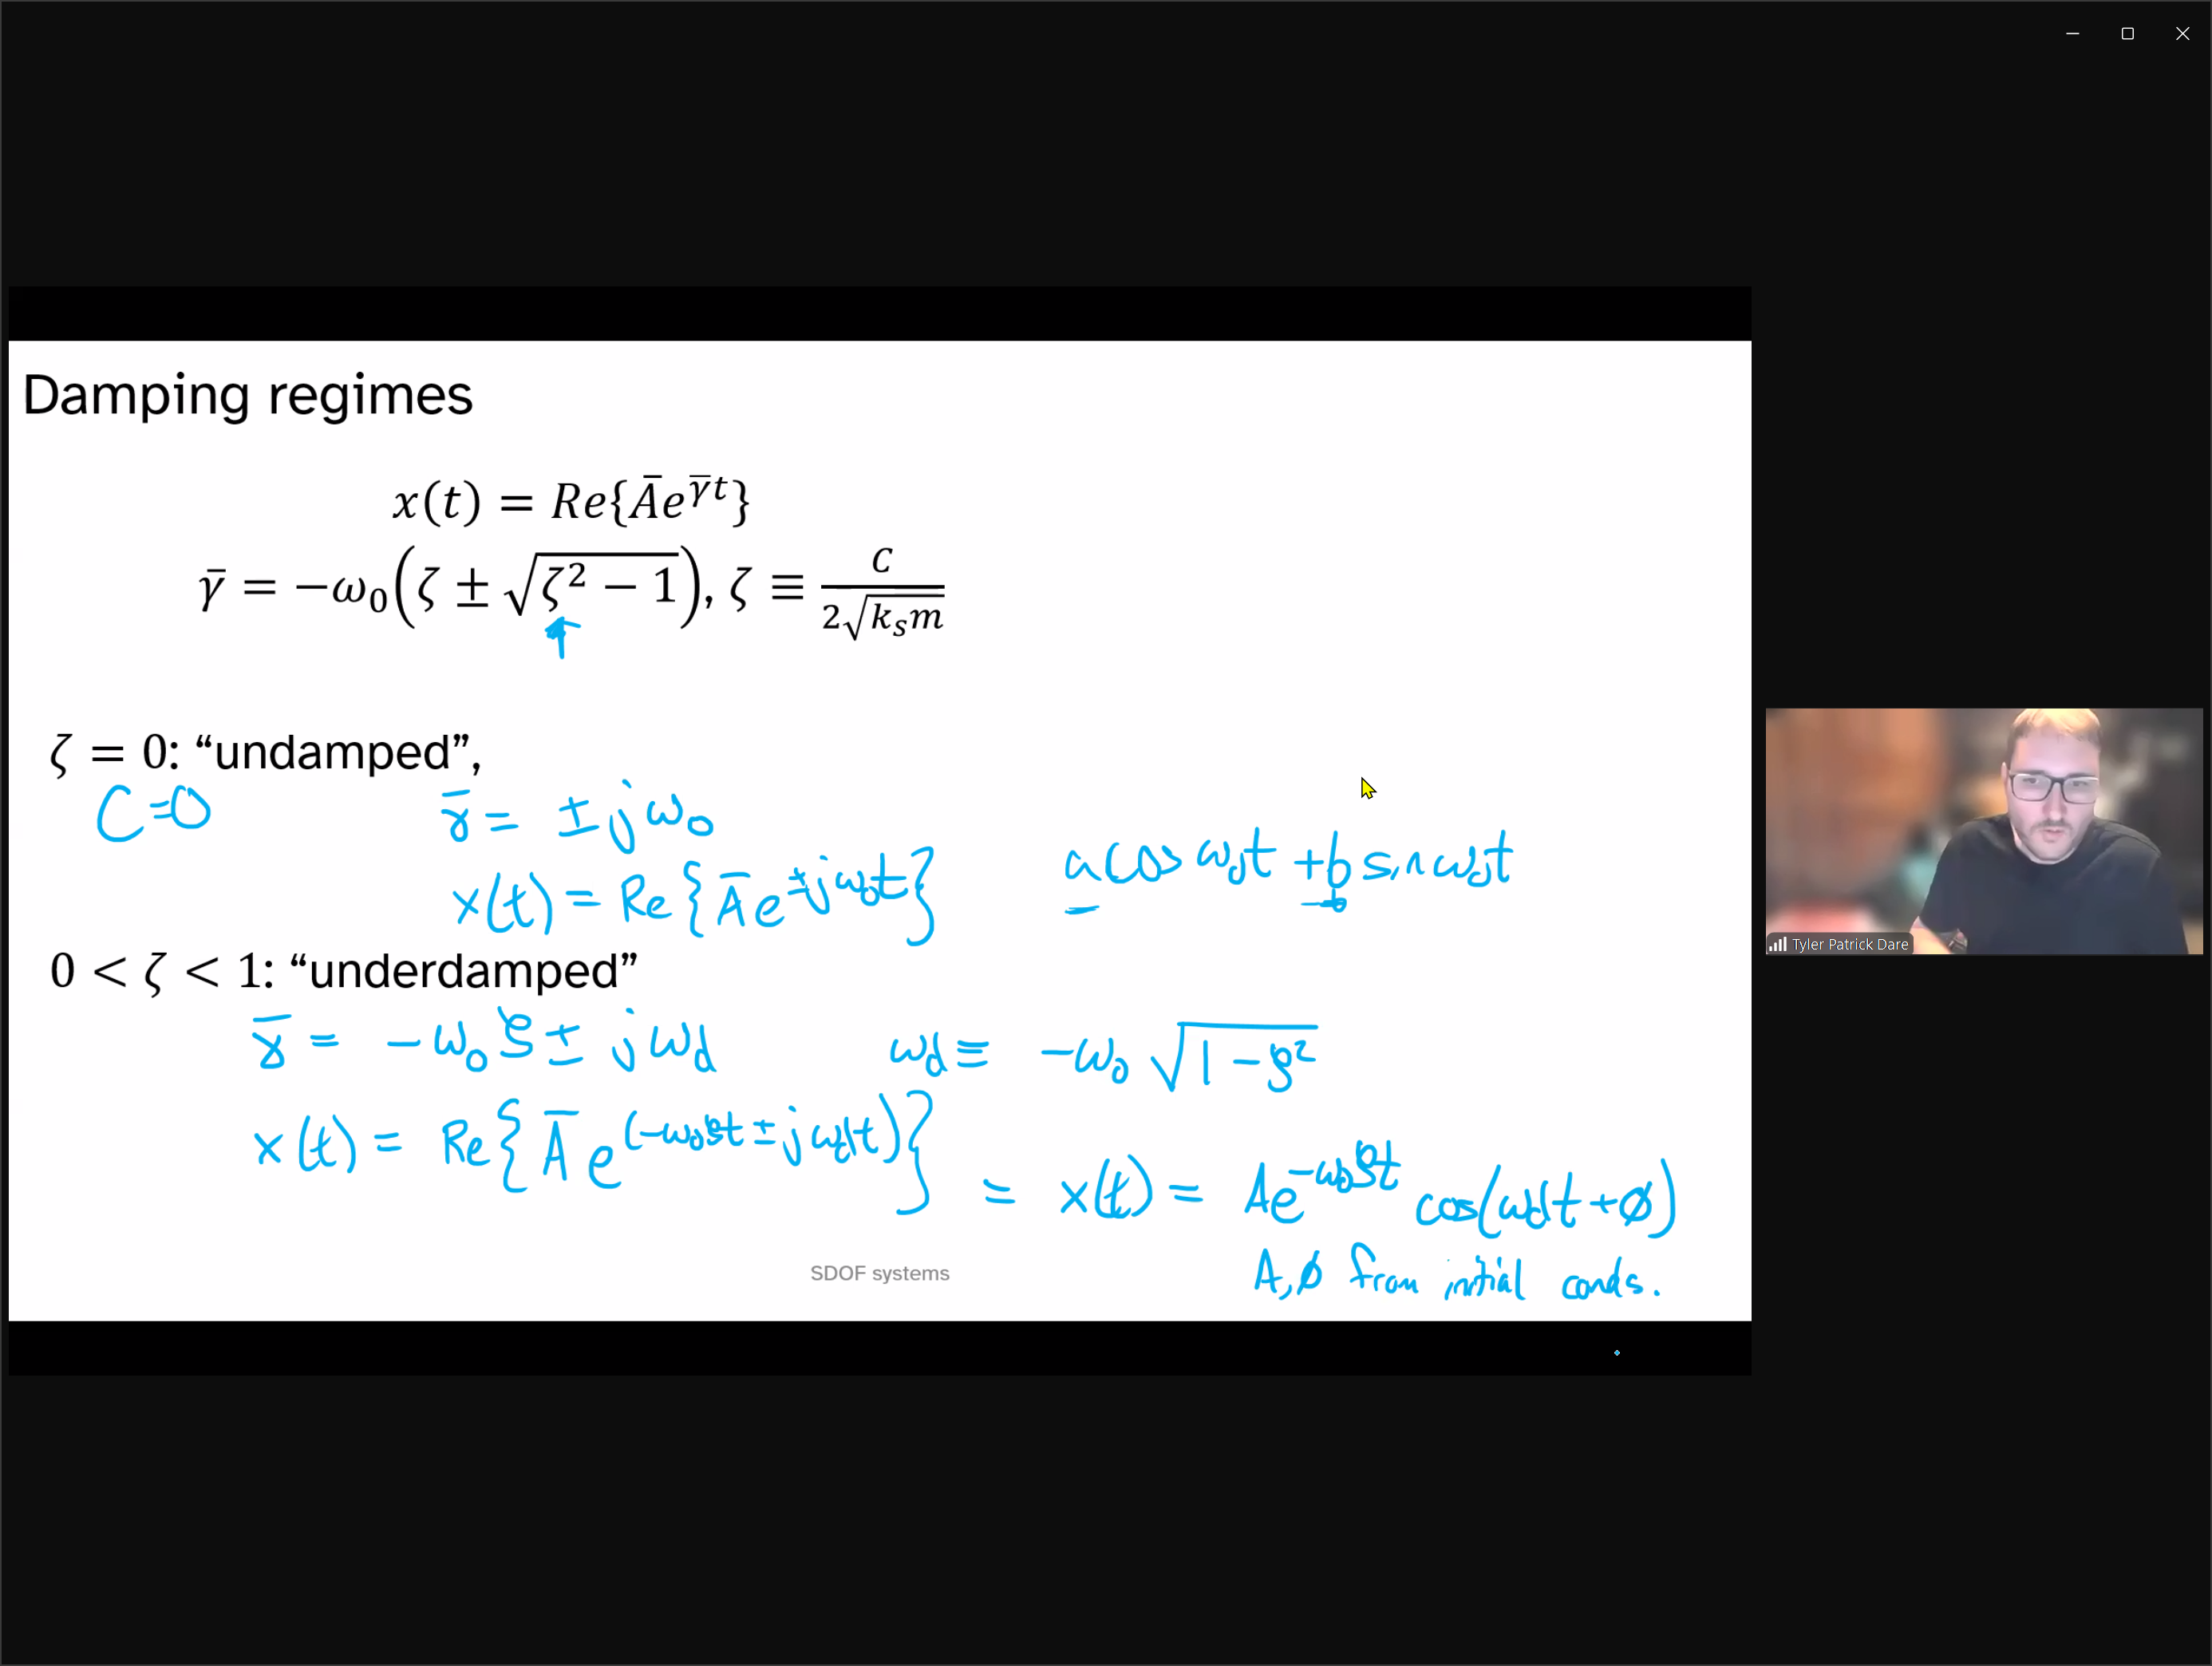 Damping regimes
x(t) = Re{Āe^(γ̄t)}
γ̄ = −ω₀(ζ ± √(ζ² − 1)), ζ ≡ C / (2√(kₛm))
ζ = 0: “undamped”,
C=0 γ̄ = ±jω₀
x(t) = Re{Āe^(±jω₀t)} a cos ω₀t + b sin ω₀t
0 < ζ < 1: “underdamped”
γ̄ = −ω₀ζ ± jωd ωd ≡ −ω₀√(1−ζ²)
x(t) = Re{Āe^(−ω₀ζt ± jωdt)} = x(t) = Ae^(−ω₀ζt) cos(ωdt+ø)
A,ø from initial conds.
SDOF systems
Tyler Patrick Dare